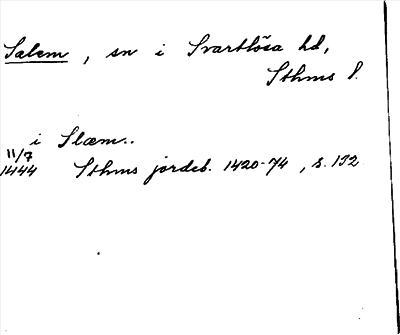 Salem, sn i Svartlösa hd,
Sthms l.
i Slæm..
11/7
1444 Sthms jordeb. 1420-74, s. 152